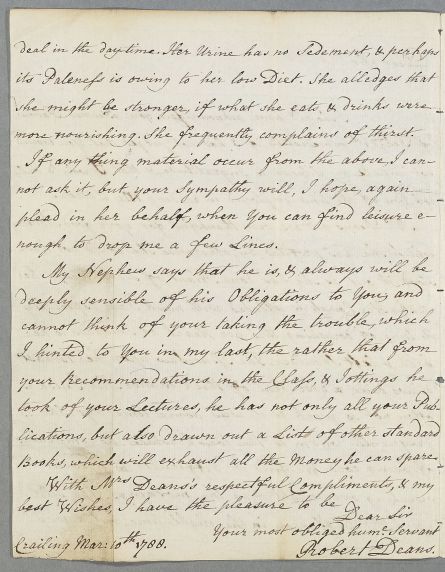 deal in the day time. Her Urine has no Sedement, & perhaps
its Paleness is owing to her low Diet. She alledges that
she might be stronger, if what she eats & drinks were
more nourishing. She frequently complains of thirst.
If any thing material occur from the above, I can-
not ask it, but your Sympathy will, I hope, again
plead in her behalf, when You can find leisure e-
nough to drop me a few Lines.
My Nephew says that he is, & always will be
deeply sensible of his Obligations to You, and
cannot think of your taking the trouble, which
I hinted to You in my last, the rather that from
your Recommendations in the Class, & Jottings he
took of your Lectures, he has not only all your Pub-
lications, but also drawn out a List of other standard
Books, which will exhaust all the Money he can spare.
With Mrs Deans's respectful Compliments, & my
best Wishes, I have the pleasure to be
Dear Sir
Your most obliged hum: Servant
Crailing Mar: 10th 1788.
Robert Deans.